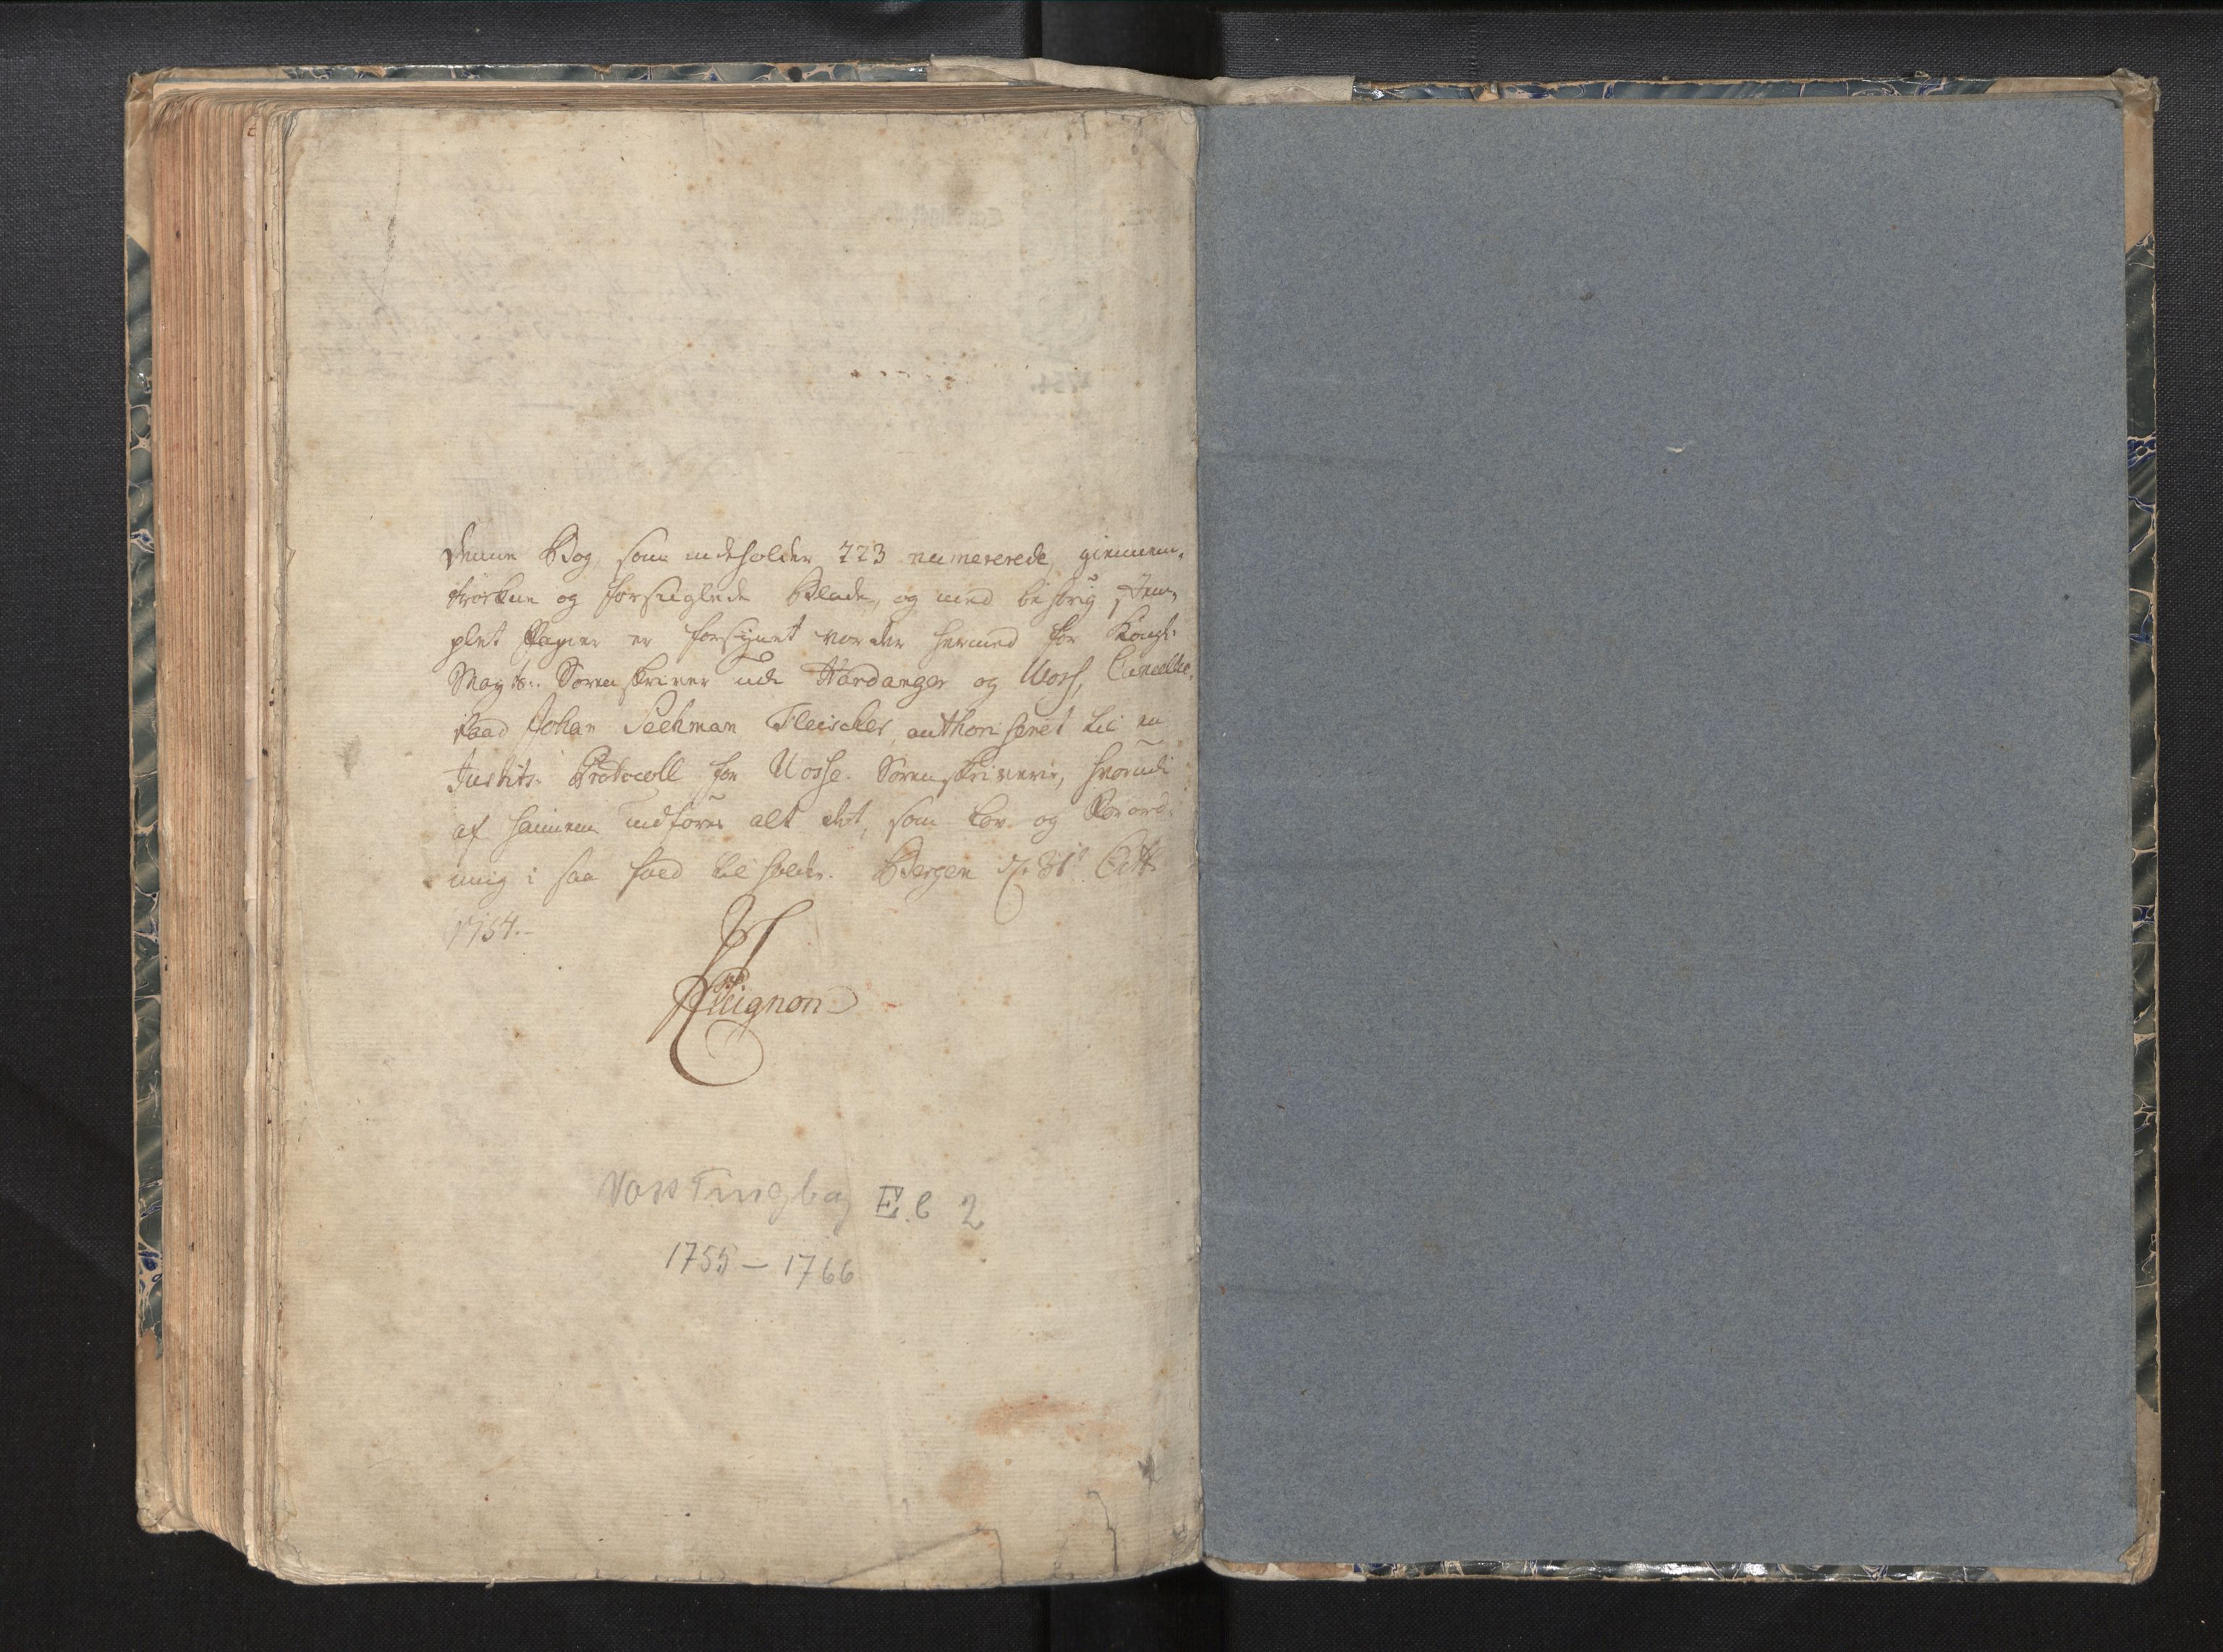 Denne Bog, som indeholder 773 numererede, giennem-
trokne og forseiglede Blade, og med behørig Stem-
plet Papier er forsynet vorder hermed for Kongl:
Mayts: Sorenskriver udi Hardanger og Vors, Cancellie-
raad Johan Seehman Fleischer authoriseret til en
Justits- Protocoll for Vosse- Sorenskriverie, hvorudi
af hannem indføres alt det, som Lov- og Forord-
ning i saa fald tilholder. Bergen d: 31 Octb
1754.-
Cheignon
Voss Tingbog I E. C 2
1755 - 1766